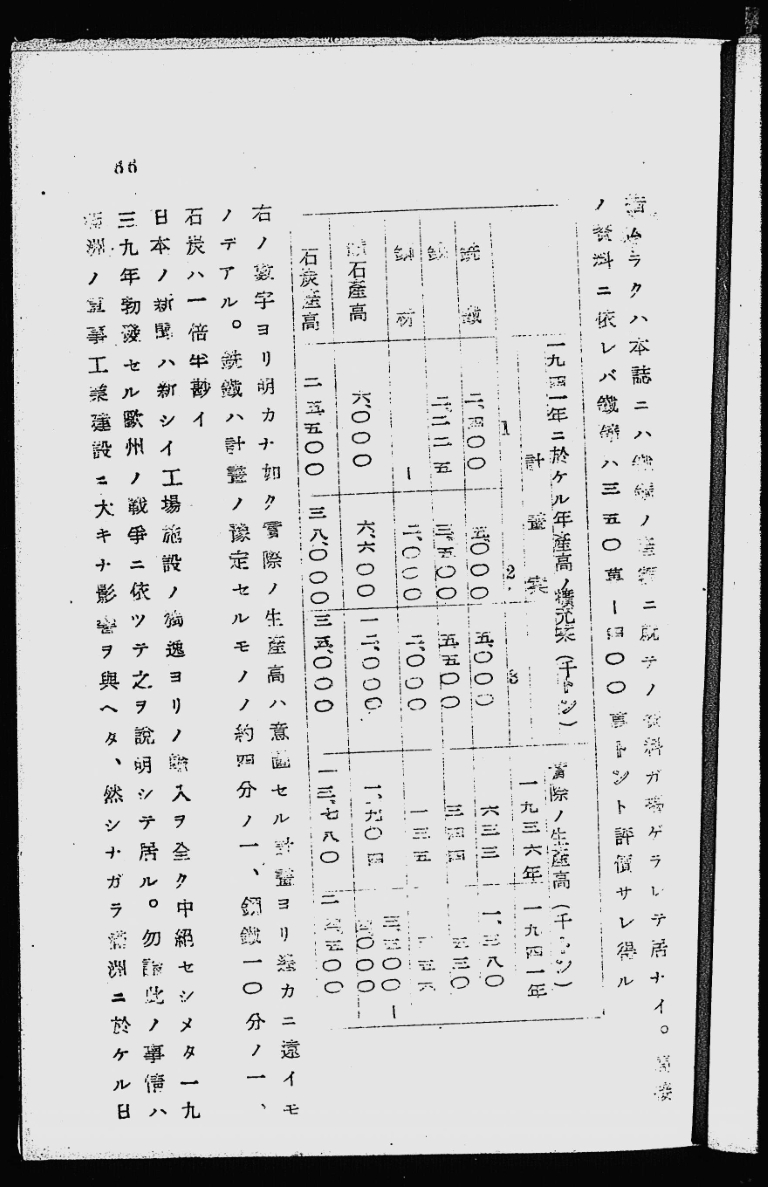 ムラクハ本誌ニハノニ就テノ資料ガ揚ゲラレテ居ナイ。
ノ資料ニ依レバ鐵ハ三五〇萬ー四〇〇萬トント評價サレ得ル
一九四一年ニ於ケル年產高ノ（千トン）
計畫案
1
2
3
實際ノ生產高（千トン）
一九三六年
一九四一年
銑鐵 二、四〇〇 五、〇〇〇 五、〇〇〇 六三三 一、三八〇
鋼 二、二二五 三、五〇〇 五五〇〇 三四四 五三〇
鋼材 ー 二、〇〇〇 二、〇〇〇 一三五
鑛石產高 六、〇〇〇 六、六〇〇 一二、〇〇〇 一、九〇四 三、五〇〇ー四〇〇〇
石炭產高 二五、五〇〇 三八、〇〇〇 三五、〇〇〇 一三、七八〇
右ノ數字ヨリ明カナ如ク實際ノ生產高ハ意圖セル計畫ヨリ遙カニ遠イモ
ノデアル。銑鐵ハ計畫ノ豫定セルモノノ約四分ノ一、鋼鐵一〇分ノ一、
石炭ハ一倍半尠イ
日本ノ新聞ハ新シイ工場施設ノ獨逸ヨリノ輸入ヲ全ク中絕セシメタ一九
三九年勃發セル歐州ノ戰爭ニ依ツテ之ヲ說明シテ居ル。勿論此ノ事情ハ
滿洲ノ軍事工業建設ニ大キナ影響ヲ與ヘタ、然シナガラ滿洲ニ於ケル日
66